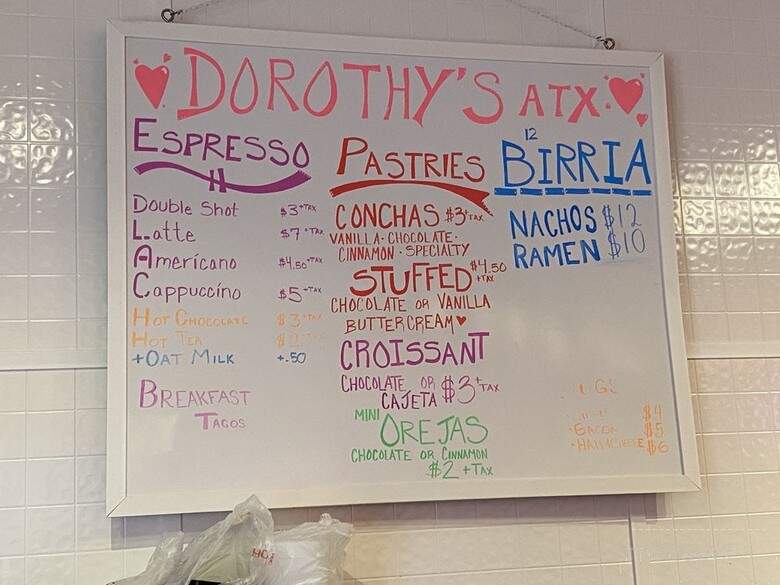 DOROTHY'S ATX
ESPRESSO
Double Shot $3 +TAX
Latte $7 +TAX
Americano $4.50 +TAX
Cappuccino $5 +TAX
HOT CHOCOLATE $3 +TAX
HOT TEA $2
+OAT MILK +.50
BREAKFAST
TACOS
PASTRIES
CONCHAS $3 +TAX
VANILLA · CHOCOLATE ·
CINNAMON · SPECIALTY
STUFFED $4.50 +TAX
CHOCOLATE OR VANILLA
BUTTERCREAM
CROISSANT
CHOCOLATE OR
CAJETA $3 +TAX
MINI
OREJAS
CHOCOLATE OR CINNAMON
$2 +TAX
12
BIRRIA
NACHOS $12
RAMEN $10
$4
·BACON $5
$6